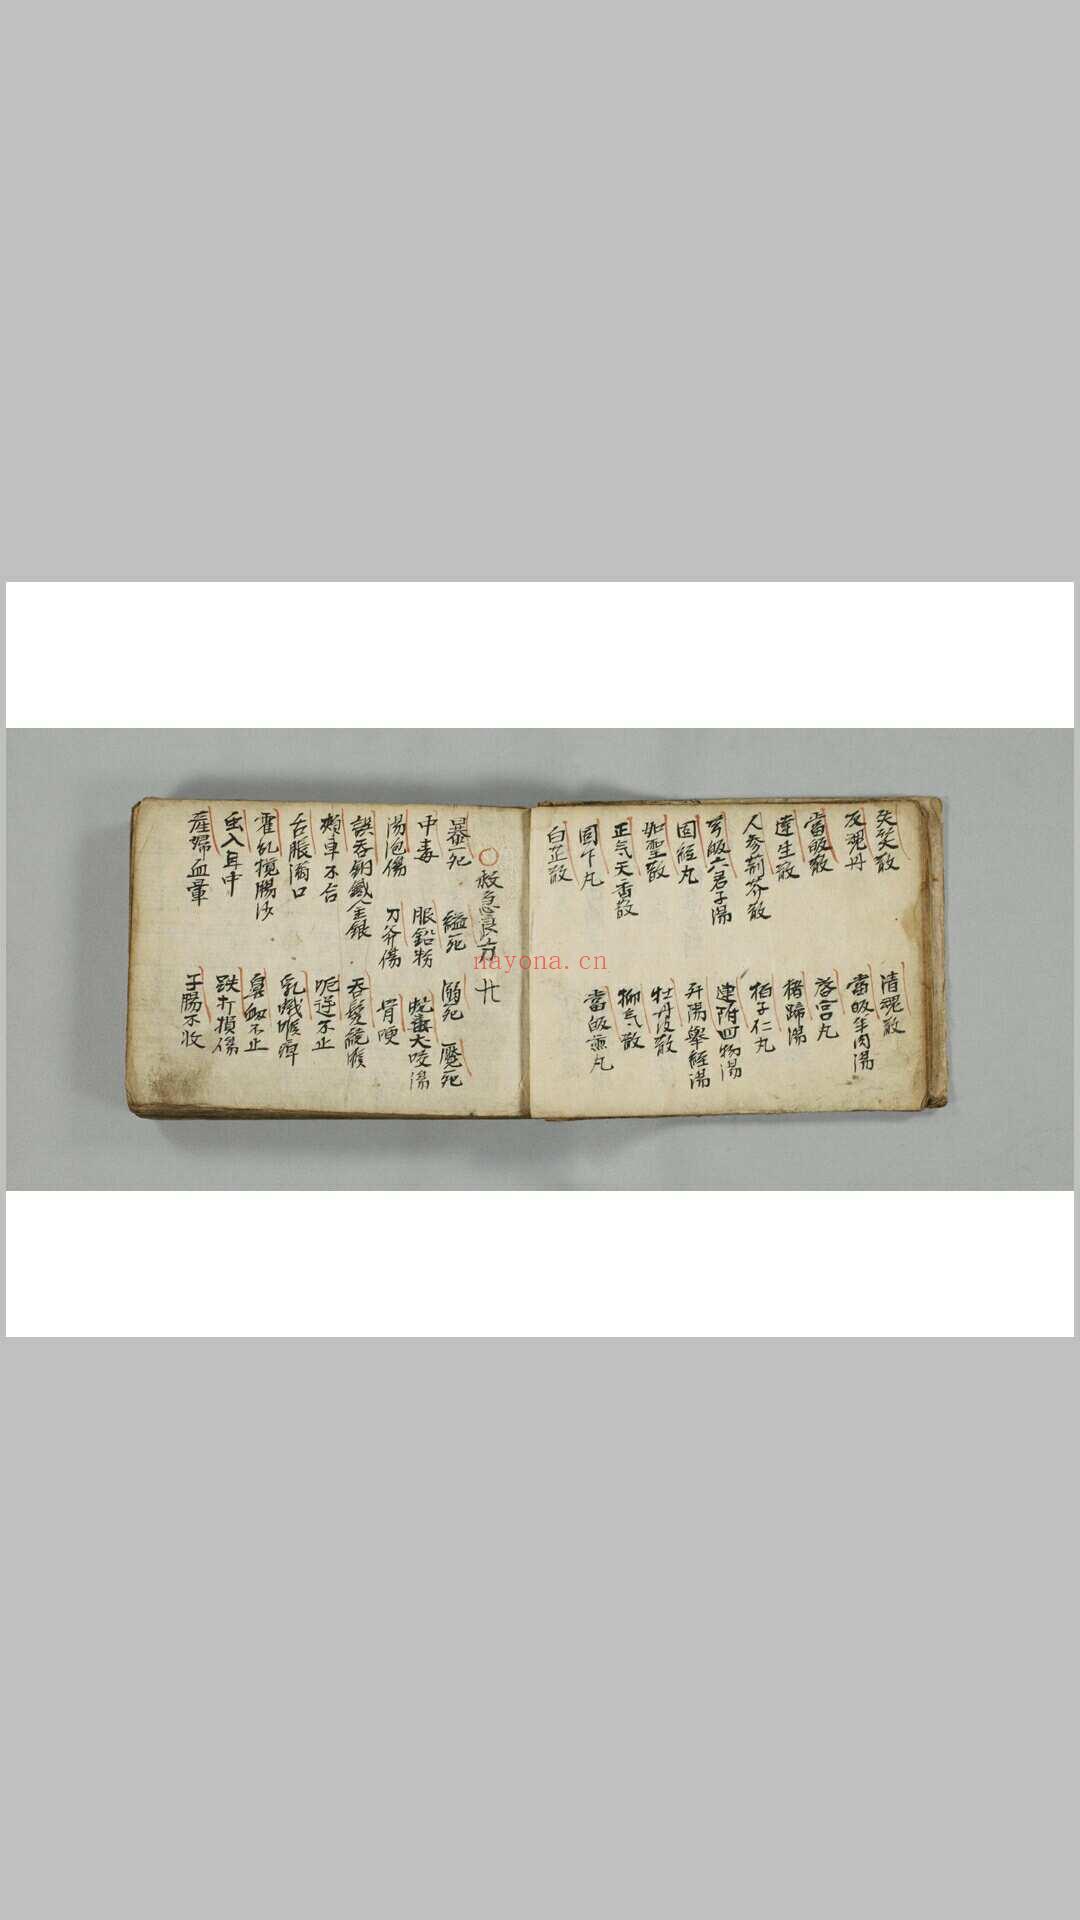 失笑散 清魂散
返魂丹 當皈羊肉湯
當皈散 啓宮丸
達生散 猪蹄湯
人參荊芥散 柏子仁丸
芎皈六君子湯 連附四物湯
固經丸 升陽舉經湯
如聖散 牡丹皮散
正气天香散 柳气散
固下丸 當皈煎丸
白芷散
救急良方 廿
暴死 縊死 溺死 魘死
中毒 服鉛粉 蛇毒犬咬傷
湯泡傷 刀斧傷 骨哽
誤吞銅鐵金銀 吞髮繞喉
頰車不合 呃逆不止
舌脹滿口 乳蛾喉痺
霍乱攪腸沙 鼻衄不止
虫入耳中 跌打損傷
産婦血暈 子腸不收
nayona.cn